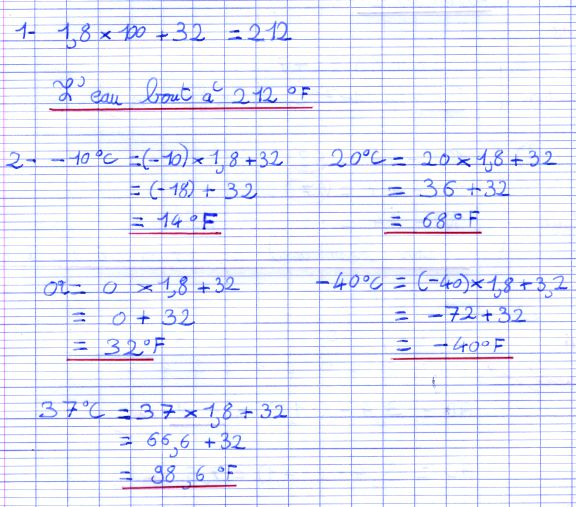 1- 1,8 × 100 + 32 = 212
L'eau bout à 212 °F
2- -10°C = (-10) × 1,8 + 32
= (-18) + 32
= 14°F
20°C = 20 × 1,8 + 32
= 36 + 32
= 68°F
0°C = 0 × 1,8 + 32
= 0 + 32
= 32°F
-40°C = (-40) × 1,8 + 3,2
= -72 + 32
= -40°F
37°C = 37 × 1,8 + 32
= 66,6 + 32
= 98,6 °F